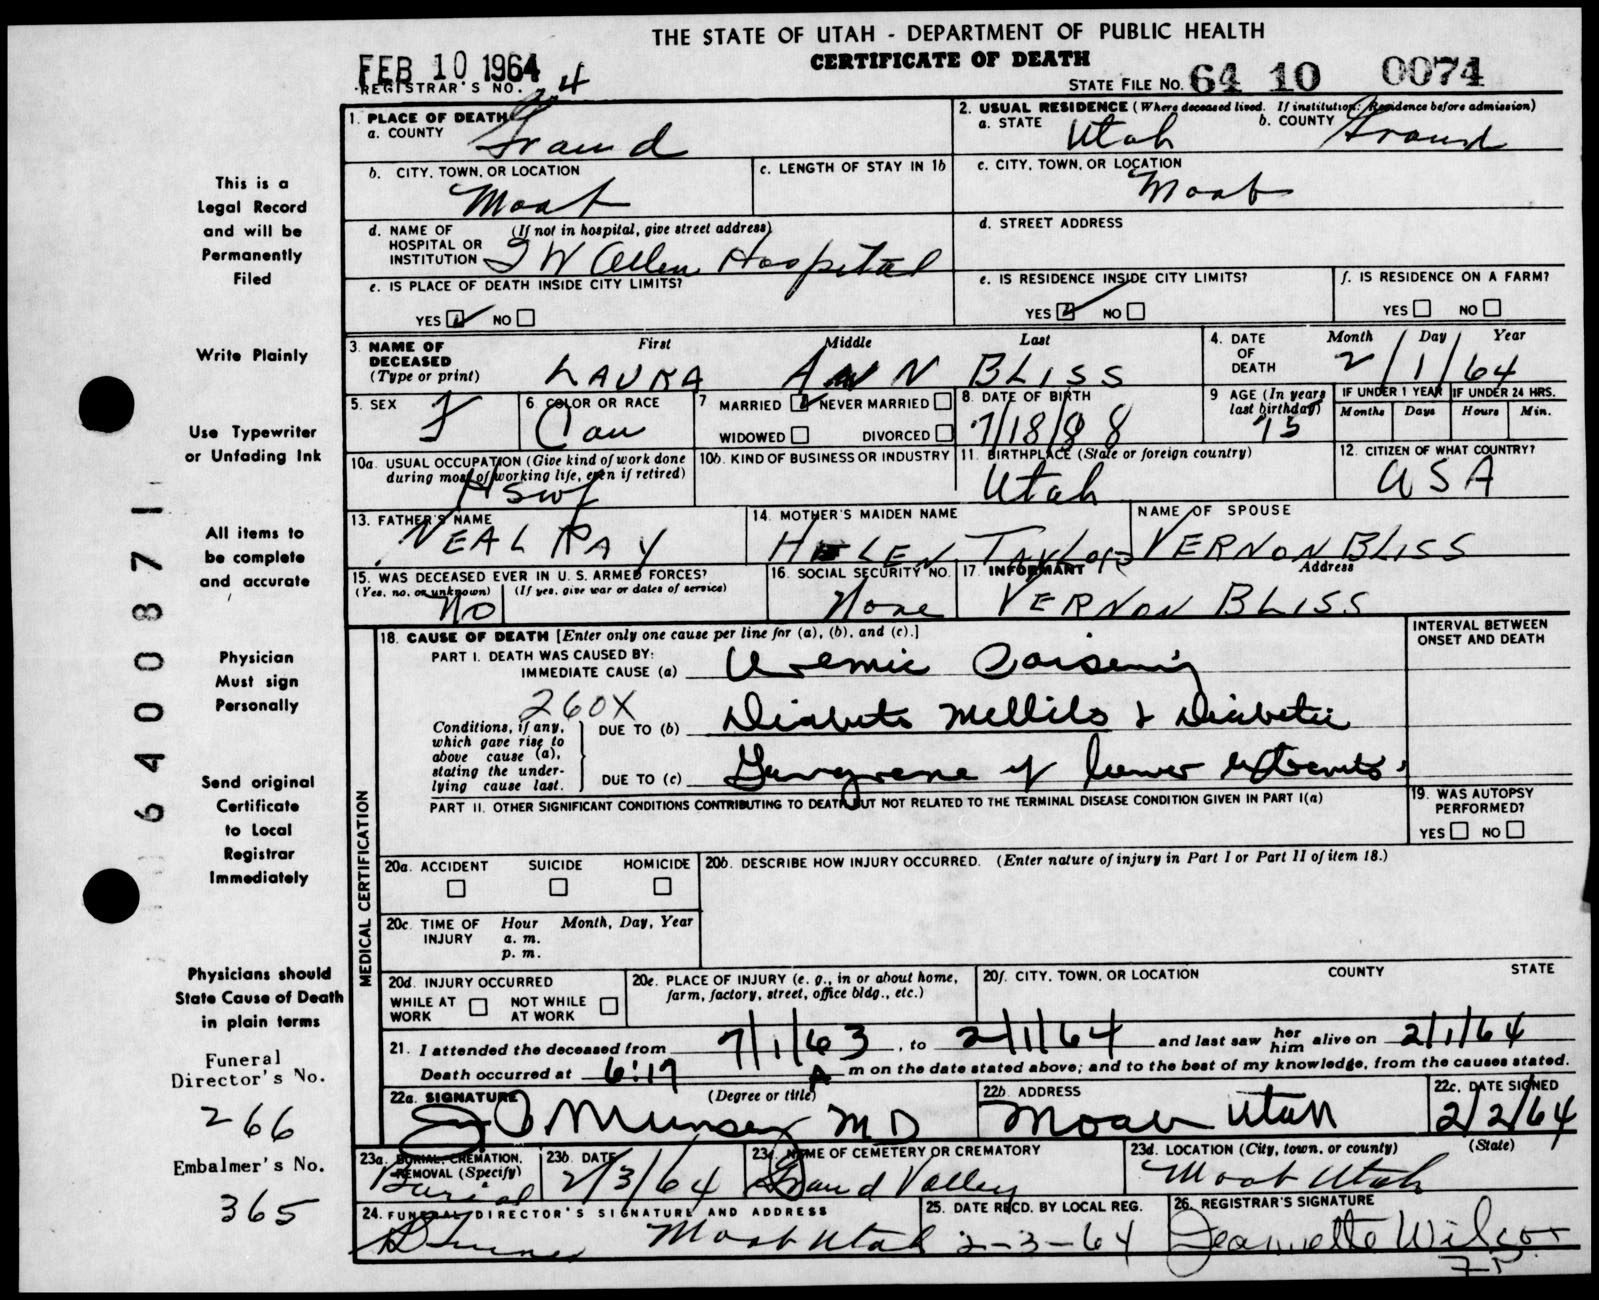 THE STATE OF UTAH - DEPARTMENT OF PUBLIC HEALTH
CERTIFICATE OF DEATH
FEB 10 1964
REGISTRAR'S NO. 4
STATE FILE NO. 64 10 0074
1. PLACE OF DEATH
a. COUNTY Grand
2. USUAL RESIDENCE (Where deceased lived. If institution: Residence before admission)
a. STATE Utah b. COUNTY Grand
b. CITY, TOWN, OR LOCATION Moab
c. LENGTH OF STAY IN 1b
c. CITY, TOWN, OR LOCATION Moab
d. NAME OF HOSPITAL OR INSTITUTION (If not in hospital, give street address)
I W Allen Hospital
d. STREET ADDRESS
e. IS PLACE OF DEATH INSIDE CITY LIMITS?
YES ✓ NO
e. IS RESIDENCE INSIDE CITY LIMITS?
YES ✓ NO
f. IS RESIDENCE ON A FARM?
YES NO
3. NAME OF DECEASED (Type or print)
First Middle Last
LAURA ANN BLISS
4. DATE OF DEATH Month Day Year
2/1/64
5. SEX F
6. COLOR OR RACE Cau
7 MARRIED ✓ NEVER MARRIED
WIDOWED DIVORCED
8. DATE OF BIRTH 7/18/88
9 AGE (In years last birthday) 75
IF UNDER 1 YEAR Months Days
IF UNDER 24 HRS. Hours Min.
10a. USUAL OCCUPATION (Give kind of work done during most of working life, even if retired)
Hswf
10b. KIND OF BUSINESS OR INDUSTRY
11. BIRTHPLACE (State or foreign country)
Utah
12. CITIZEN OF WHAT COUNTRY?
USA
13. FATHER'S NAME
NEAL RAY
14. MOTHER'S MAIDEN NAME
HELEN TAYLOR
NAME OF SPOUSE
VERNON BLISS
15. WAS DECEASED EVER IN U. S. ARMED FORCES?
(Yes, no, or unknown) (If yes, give war or dates of service)
NO
16. SOCIAL SECURITY NO.
None
17. INFORMANT Address
VERNON BLISS
MEDICAL CERTIFICATION
18. CAUSE OF DEATH [Enter only one cause per line for (a), (b), and (c).]
INTERVAL BETWEEN ONSET AND DEATH
PART I. DEATH WAS CAUSED BY:
IMMEDIATE CAUSE (a) Uremic Poisening
260X
Conditions, if any, which gave rise to above cause (a), stating the underlying cause last.
DUE TO (b) Diabetes Mellitis & Diabetic
DUE TO (c) Gangrene of lower extremities
PART II. OTHER SIGNIFICANT CONDITIONS CONTRIBUTING TO DEATH BUT NOT RELATED TO THE TERMINAL DISEASE CONDITION GIVEN IN PART I(a)
19. WAS AUTOPSY PERFORMED?
YES NO
20a. ACCIDENT SUICIDE HOMICIDE
20b. DESCRIBE HOW INJURY OCCURRED. (Enter nature of injury in Part I or Part II of item 18.)
20c. TIME OF INJURY Hour Month, Day, Year
a. m.
p. m.
20d. INJURY OCCURRED
WHILE AT WORK NOT WHILE AT WORK
20e. PLACE OF INJURY (e. g., in or about home, farm, factory, street, office bldg., etc.)
20f. CITY, TOWN, OR LOCATION COUNTY STATE
21. I attended the deceased from 7/1/63, to 2/1/64 and last saw her him alive on 2/1/64
Death occurred at 6:17 A m on the date stated above; and to the best of my knowledge, from the causes stated.
22a. SIGNATURE (Degree or title)
Munsey MD
22b. ADDRESS
Moab Utah
22c. DATE SIGNED
2/2/64
23a. BURIAL, CREMATION, REMOVAL (Specify)
Burial
23b. DATE
2/3/64
23c. NAME OF CEMETERY OR CREMATORY
Grand Valley
23d. LOCATION (City, town, or county) (State)
Moab Utah
24. FUNERAL DIRECTOR'S SIGNATURE AND ADDRESS
Moab Utah
25. DATE RECD. BY LOCAL REG.
2-3-64
26. REGISTRAR'S SIGNATURE
Jeannette Wilcox
This is a
Legal Record
and will be
Permanently
Filed
Write Plainly
Use Typewriter
or Unfading Ink
All items to
be complete
and accurate
Physician
Must sign
Personally
Send original
Certificate
to Local
Registrar
Immediately
Physicians should
State Cause of Death
in plain terms
Funeral
Director's No.
266
Embalmer's No.
365
6400871